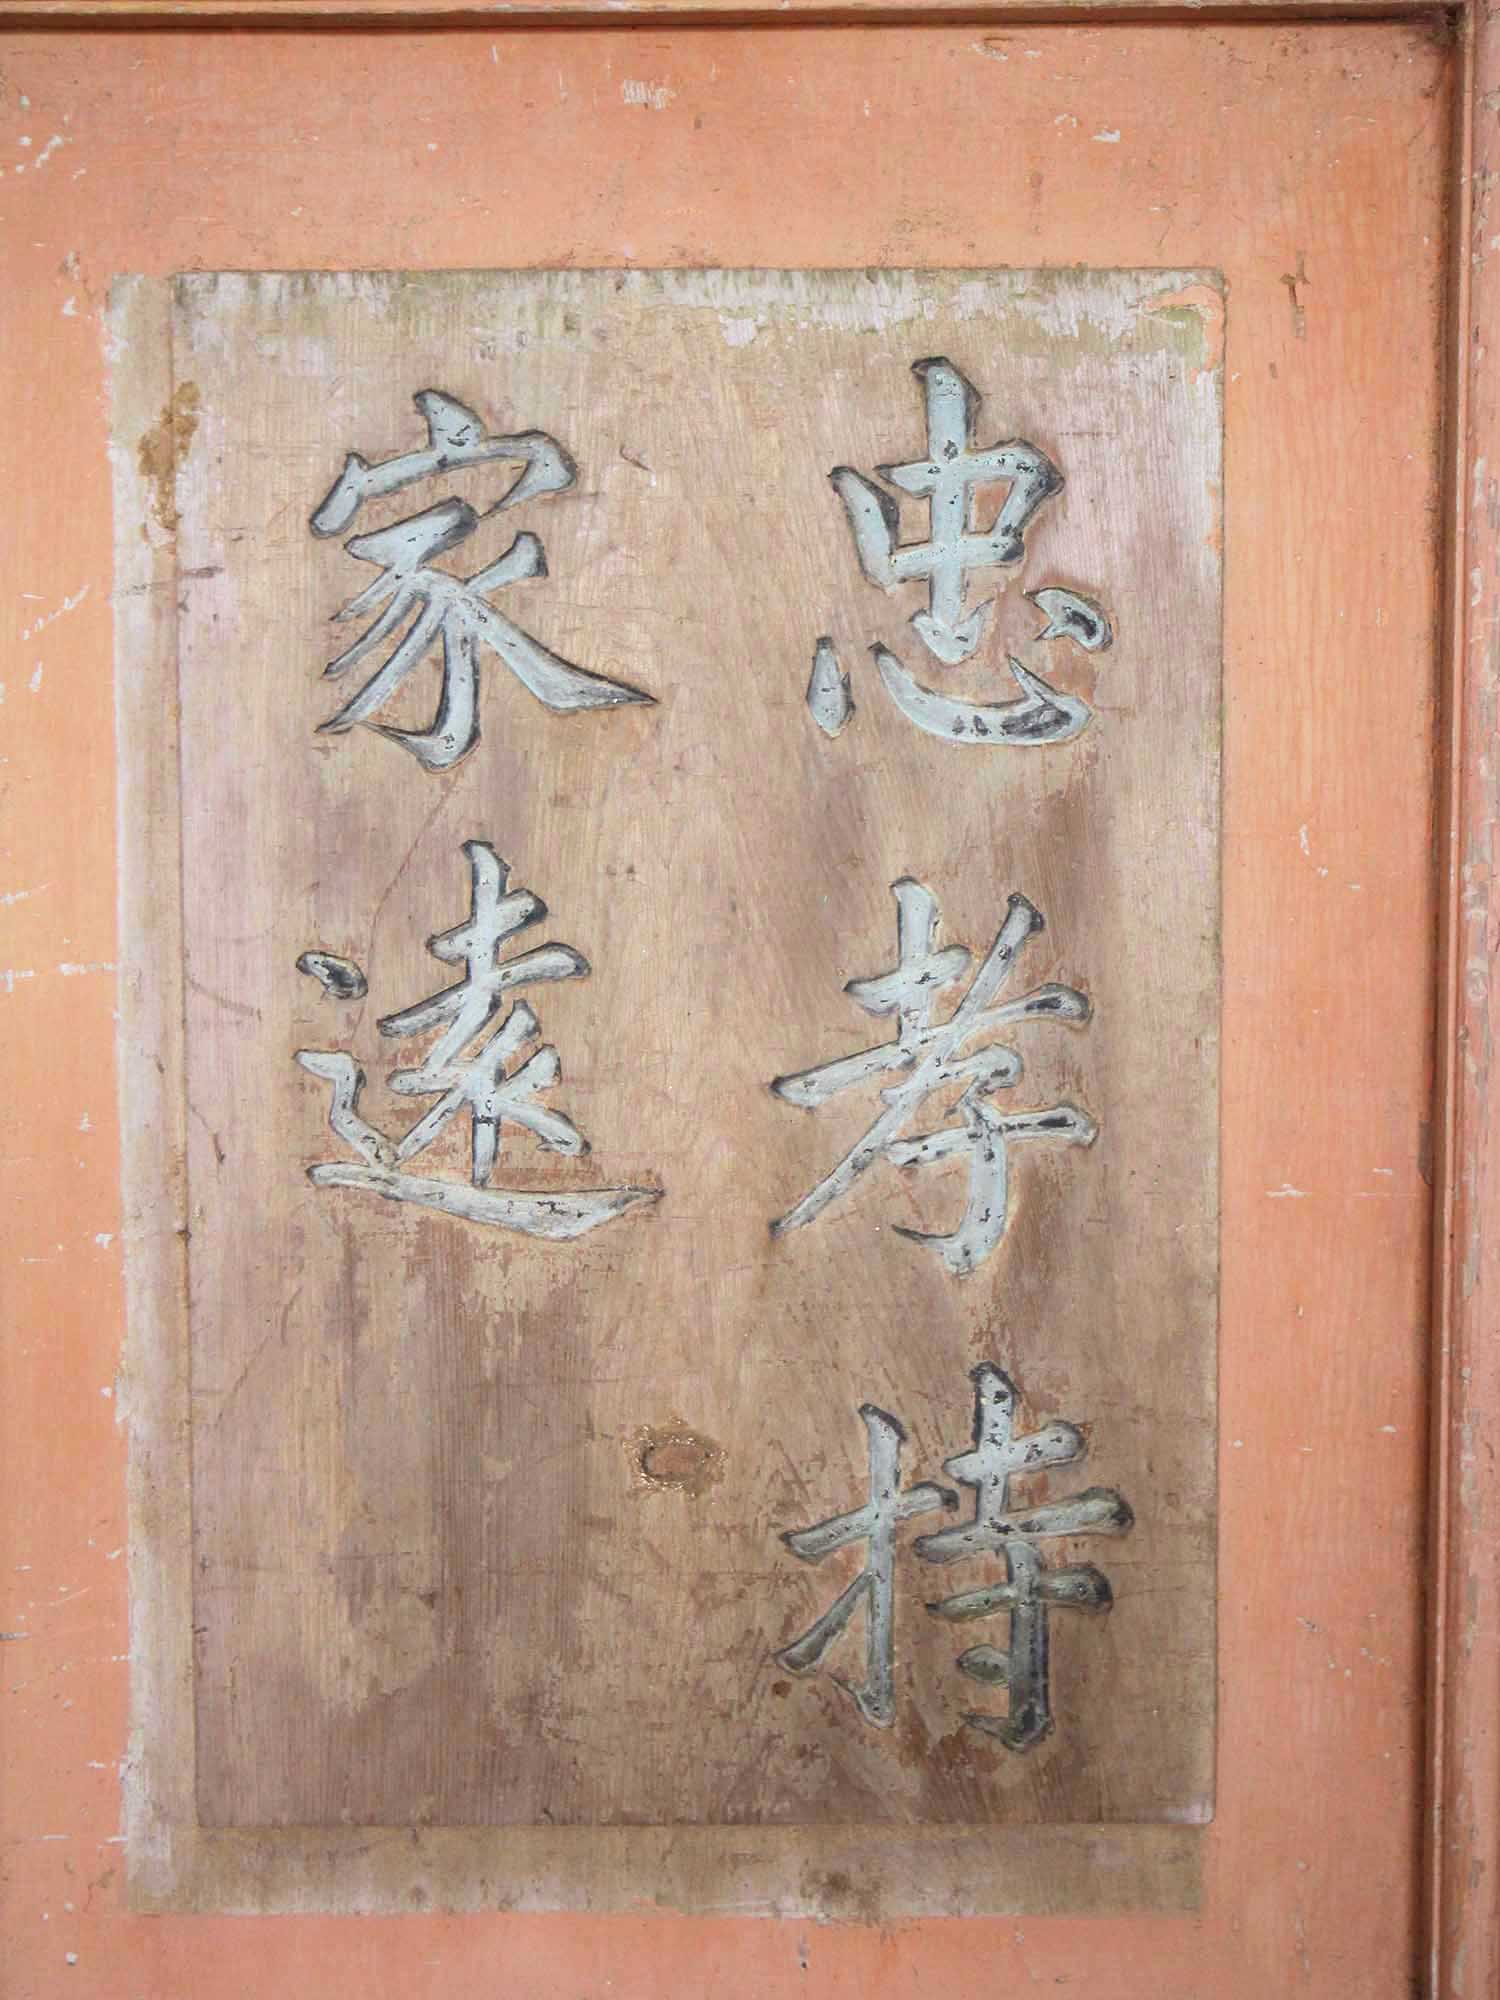 忠孝持
家遠